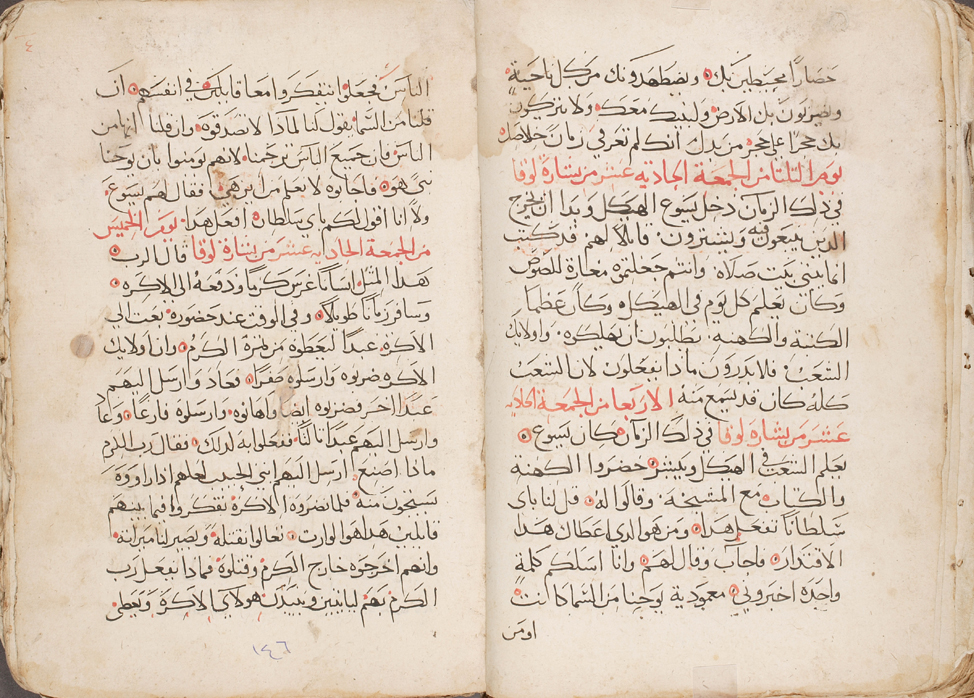 حصارًا محيطين بك ويضطهدونك من كل ناحية
ويضربون بك الارض ولبنيك معك ولا يتركون
بك حجرا على حجر من بدل انك لم تعرفي زمان خلاصك
يوم التلتا من الجمعة الحاديه عشر من بشارة لوقا
في ذلك الزمان دخل يسوع الهيكل وبدا ان يخرج
الدين يبيعون فيه ويشترون قايلا لهم قد كتب
انما بيتي بيت صلاه وانتم جعلتموه مغارة للصوص
وكان يعلم كل يوم في الهيكل وكان عظما
الكتبه والكهنه يطلبون ان يهلكوه واولايك
الشعب فلا يدرون ماذا يفعلون لان الشعب
كله كان قد يسمع منه الاربعا من الجمعة الحاديه
عشر من بشارة لوقا في ذلك الزمان كان يسوع
يعلم الشعب في الهيكل ويبشر حضروا الكهنه
والكتاب مع المشيخه وقالوا له قل لنا باي
سلطانا تفعل هدا ومن هو الدي اعطاك هدا
الاقتدار فاجاب وقال لهم وانا اسلكم كلمة
واحده اخبروني معمودية يوحنا من السما كانت
او من
الناس فجعلوا يتفكروا معا قايلين في انفسهم ان
قلنا من السما يقول لنا لماذا لا تصدقوه وان قلنا انها من
الناس فان جميع الناس ترجمنا لانهم يومنوا بان يوحنا
نبي هو فاجابوه لا نعلم من اين هي فقال لهم يسوع
ولا انا اقول لكم باي سلطان افعل هدا يوم الخميس
من الجمعة الحاديه عشر من بشارة لوقا قال الرب
هدا المثل انسانا غرس كرما ودفعه الى الاكره
وسافر زمانا طويلا وفي الوقت عند حضوره بعث الى
الاكره عبدا ليعطوه من ثمرة الكرم وان اولايك
الاكره ضربوه وارسلوه صفرا فعاد وارسل اليهم
عبدا اخر فضربوه ايضا واهانوه وارسلوه فارغا وعاد
وارسل اليهم عبدا ثالثا ففعلوا به كذلك فقال رب الكرم
ماذا اصنع ارسل اليهم ابني الحبيب لعلهم اذا راووه
يستحيون منه فلما نضروه الاكرة تفكروا فيما بينهم
قايلين هدا هو الوارت تعالوا نقتله ويصير لنا ميراته
وانهم اخرجوه خارج الكرم وقتلوه فماذا يفعل رب
الكرم بهم ليايتين ويبيدن هولاي الاكرة ويعطي
١٤٦